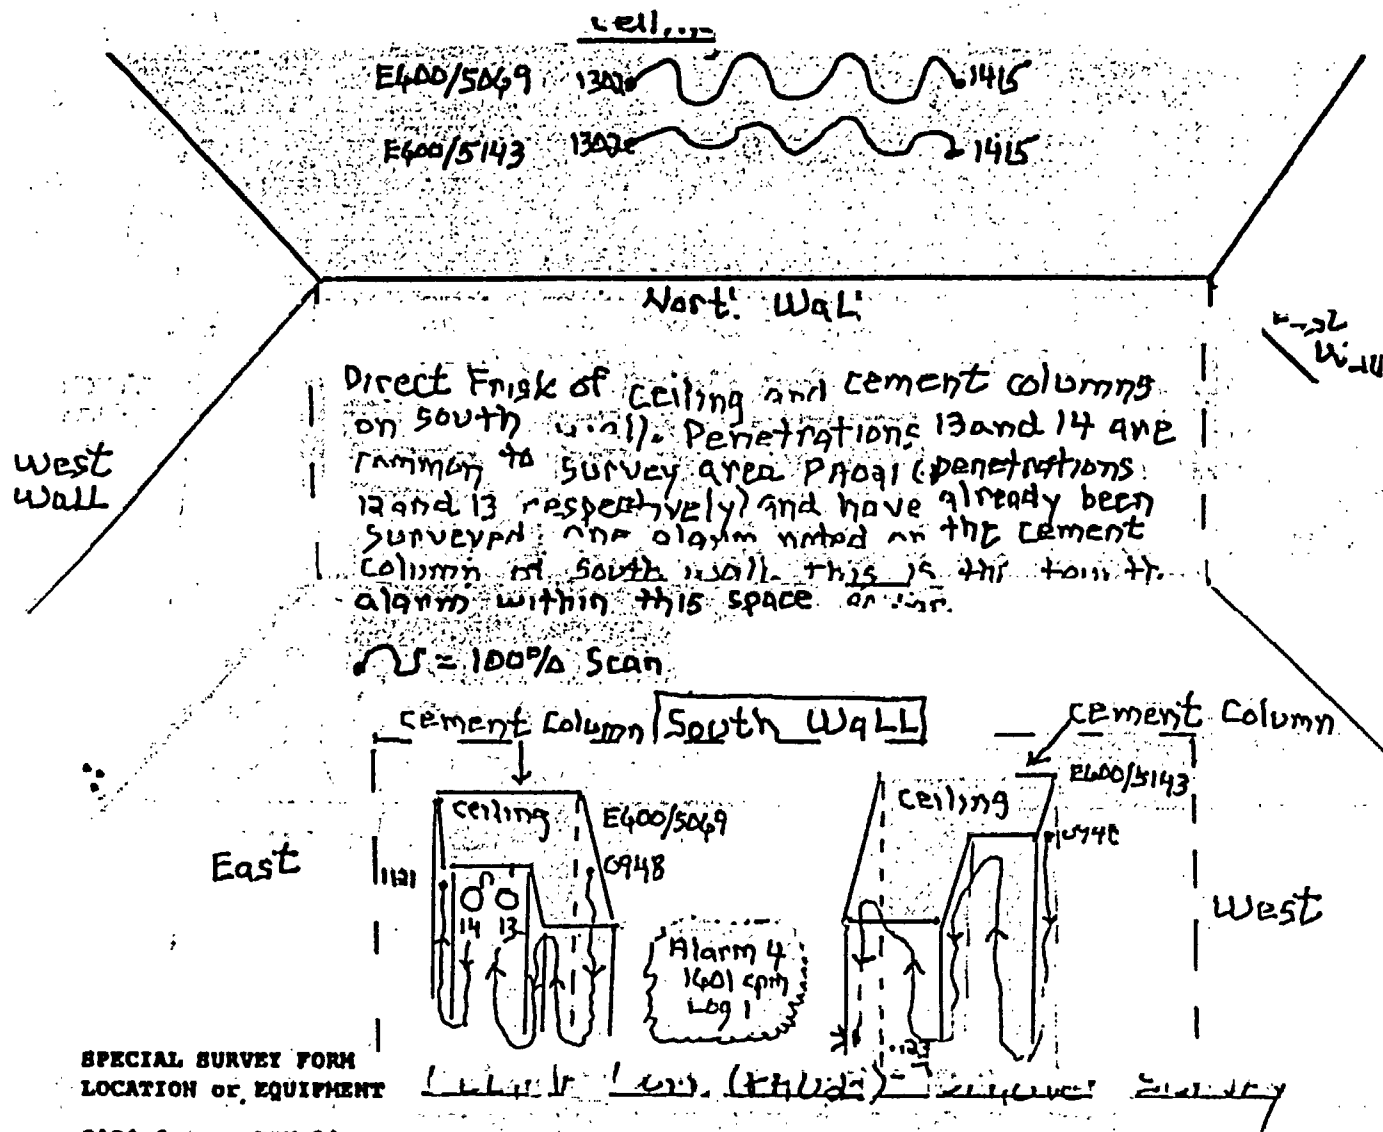 E600/5069 1302 1415
E600/5143 1302 1415
North Wall
West
Wall
Direct Frisk of ceiling and cement columns
on south wall. Penetrations 13 and 14 are
common to survey area (penetrations
12 and 13 respectively) and have already been
surveyed. one alarm noted on the cement
column of south wall. this is the fourth
alarm within this space
= 100% Scan
cement Column South Wall cement Column
ceiling E600/5069 ceiling E600/5143
East 1121 0948 West
14 13
Alarm 4
1601 cpm
Log 1
SPECIAL SURVEY FORM
LOCATION or EQUIPMENT